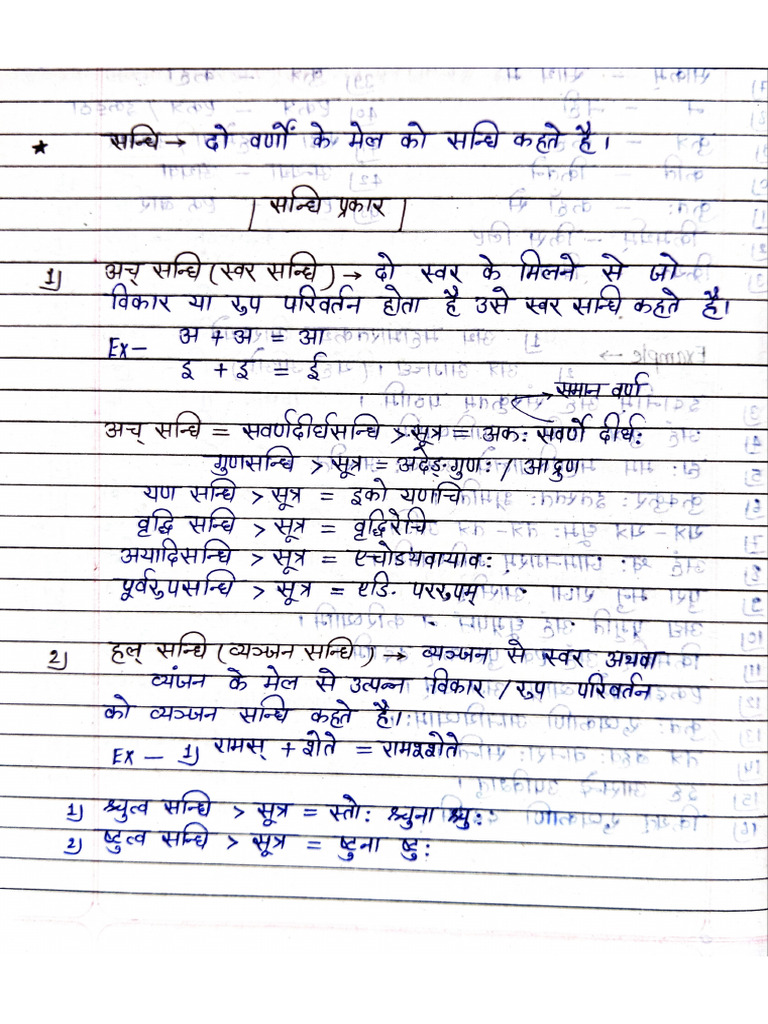 ★ सन्धि → दो वर्णों के मेल को सन्धि कहते है।
सन्धि प्रकार
1) अच् सन्धि (स्वर सन्धि) → दो स्वर के मिलने से जो
विकार या रुप परिवर्तन होता है उसे स्वर सन्धि कहते है।
Ex- अ + अ = आ
इ + इ = ई
→ समान वर्ण
अच् सन्धि = सवर्णदीर्घसन्धि > सूत्र = अकः सवर्णे दीर्घः
गुणसन्धि > सूत्र = अदेङ्गुणः / आद्गुण
यण सन्धि > सूत्र = इको यणचि
वृद्धि सन्धि > सूत्र = वृद्धिरेचि
अयादिसन्धि > सूत्र = एचोडयवायावः
पूर्वरुपसन्धि > सूत्र = एडि. पररुपम्
2) हल् सन्धि (व्यञ्जन सन्धि) → व्यञ्जन से स्वर अथवा
व्यंजन के मेल से उत्पन्न विकार / रुप परिवर्तन
को व्यञ्जन सन्धि कहते है।
Ex – 1) रामस् + शेते = रामश्शेते
1) श्चुत्व सन्धि > सूत्र = स्तोः श्चुना श्चुः
2) ष्टुत्व सन्धि > सूत्र = ष्टुना ष्टुः